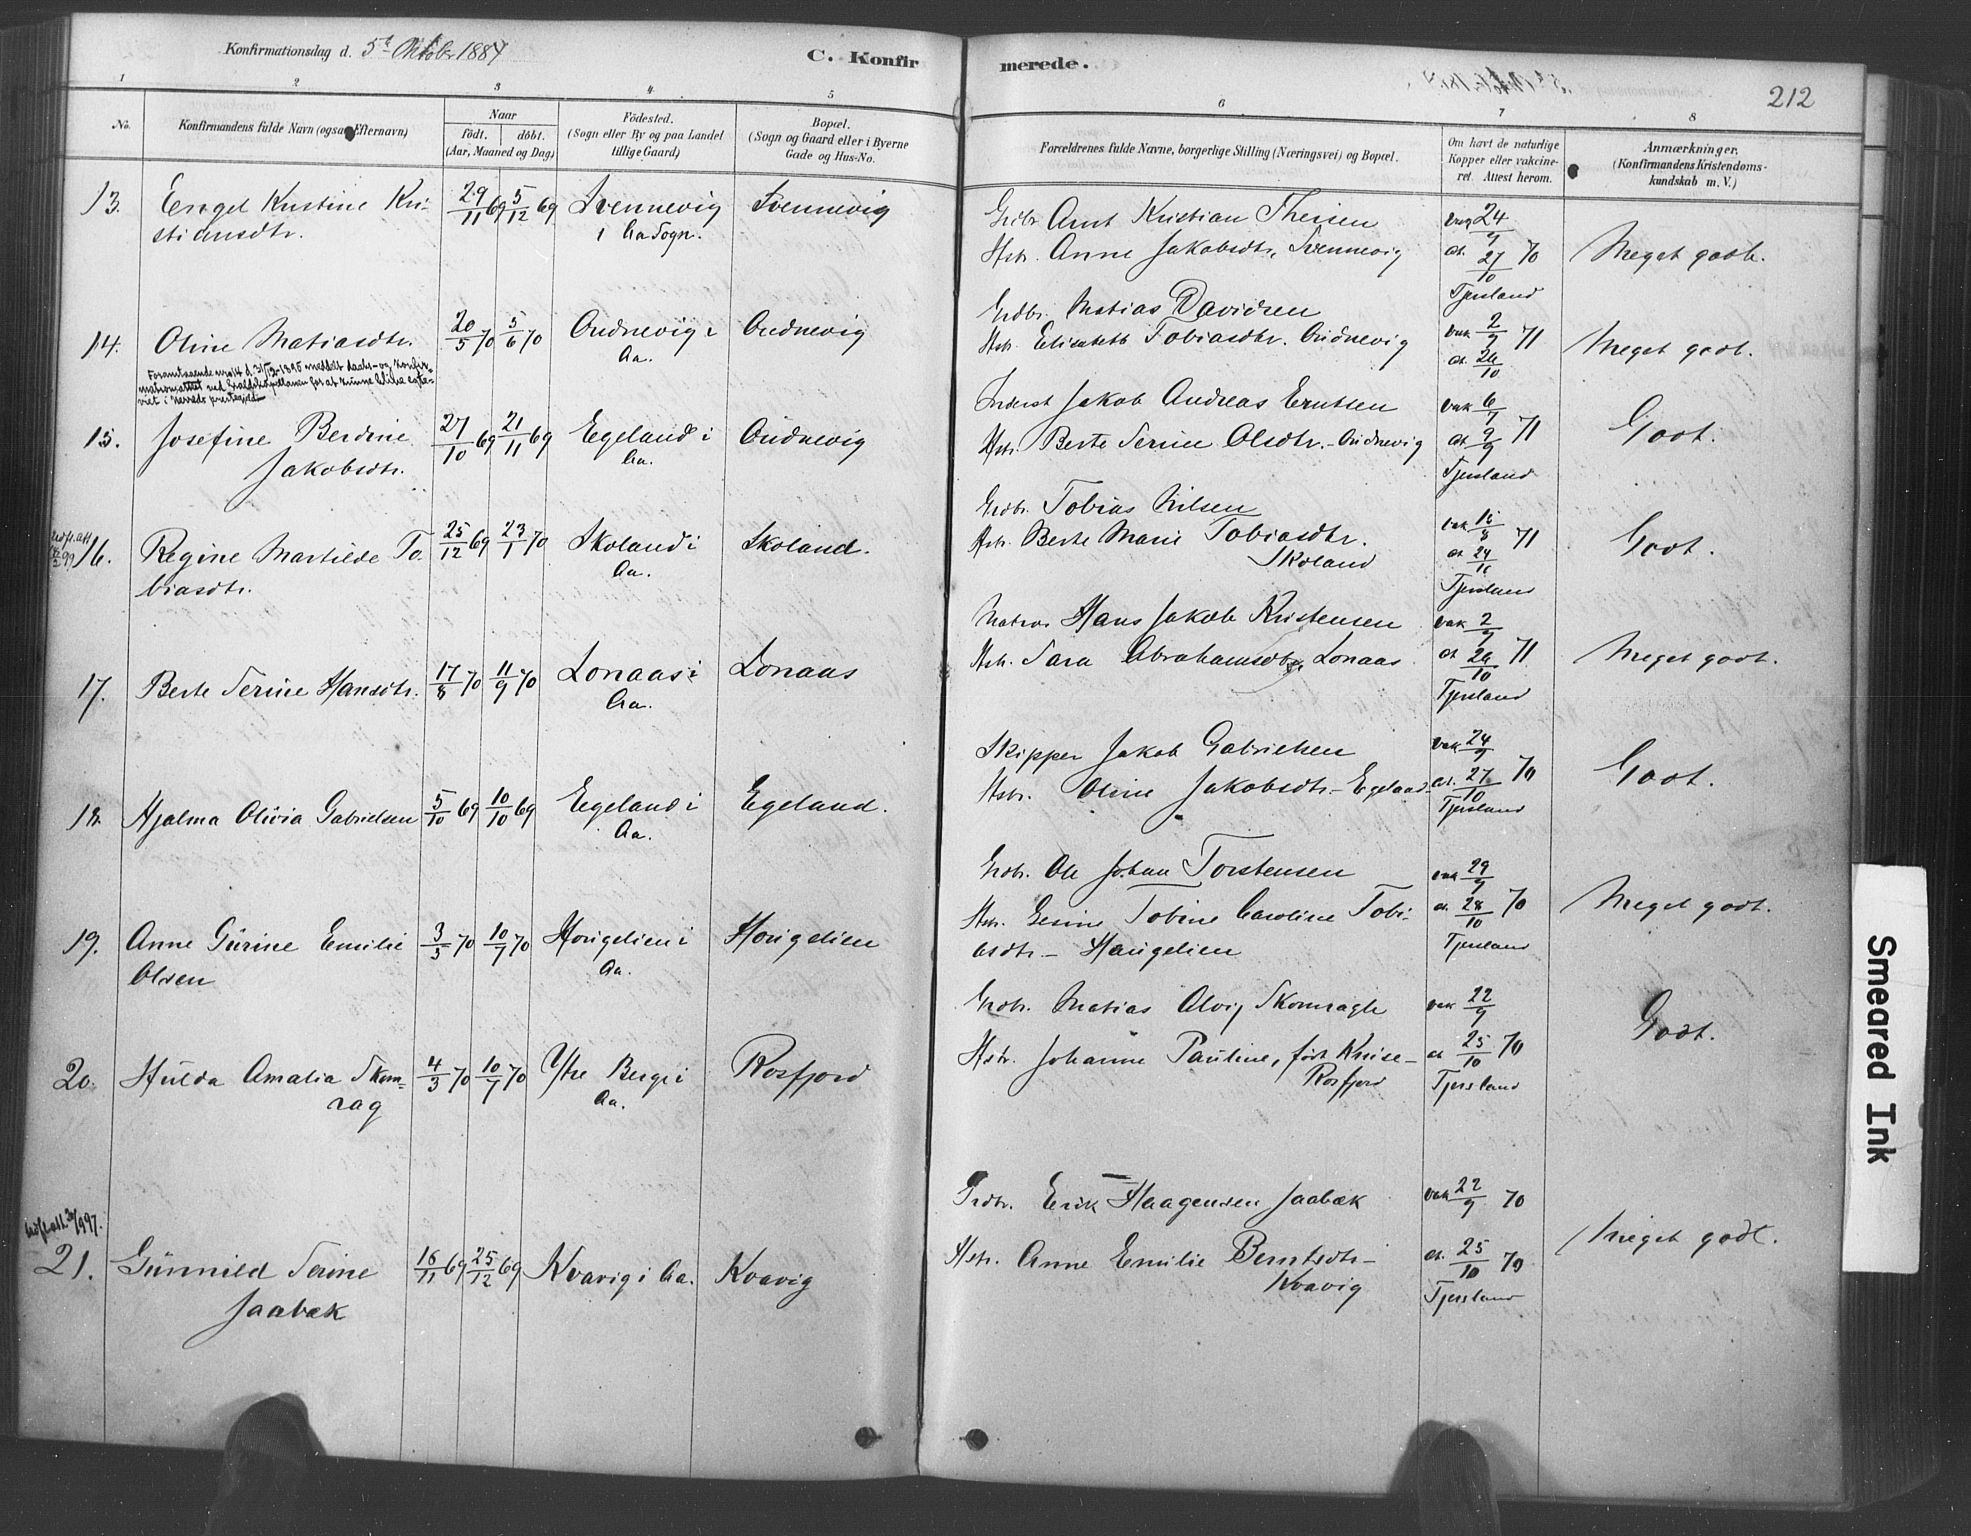 Konfirmationsdag d. 5te Oktober 1884
C. Konfirmerede.
212
1 2 3 4 5 6 7 8
No.
Konfirmandens fulde Navn (ogsaa Efternavn)
Naar
født. døbt.
(Aar, Maaned og Dag)
Fødested.
(Sogn eller By og paa Landet
tillige Gaard)
Bopæl.
(Sogn og Gaard eller i Byerne
Gade og Hus-No.
Forældrenes fulde Navne, borgerlige Stilling (Næringsvei) og Bopæl.
Om havt de naturlige
Kopper eller vakcine-
ret. Attest herom.
Anmærkninger,
(Konfirmandens Kristendoms-
kundskab m. V.)
13. Engel Kristine Kri-
stiansdtr.
29/11 69 5/12 69
Svennevig
i Aa Sogn.
Svennevig
Grdbr. Arnt Kristian Theisen
Hstr. Anne Jakobsdtr, Svennevig
vak 24/9
at. 27/10 70
Tjersland
Meget godt.
14. Oline Matiasdtr.
20/5 70 5/6 70
Oudnevig i
Aa.
Oudnevig
Grdbr. Matias Davidsen
Hstr. Elisabeth Tobiasdtr. Oudnevig
vak 2/9 71
at 20/10
Meget godt.
15. Josefine Berdine
Jakobsdtr.
27/10 69 21/11 69
Egeland i
Aa.
Oudnevig
Inderst Jakob Andreas Erntsen
Hstr. Berte Serine Olsdtr. - Oudnevig
vak 6/7
at 9/9 71
Tjersland
Godt.
16. Regine Martilde To-
biasdtr.
25/12 69 23/1 70
Skoland i
Aa.
Skoland.
Grdbr. Tobias Nilsen
Hstr. Berte Marie Tobiasdtr.
Skoland
71
Tjersland
Godt.
17. Berte Serine Hansdtr.
17/8 70 11/9 70
Lonaas i
Aa.
Lonaas
Matros Hans Jakob Kristensen
Hstr. Sara Abrahamsdtr, Lonaas
vak 2/9
at 20/10 71
Tjersland
Meget godt.
18. Hjalma Olivia Gabrielsen
5/10 69 10/10 69
Egeland i
Aa.
Egeland.
Skipper Jakob Gabrielsen
Hstr. Oline Jakobsdtr - Egeland
vak 24/9
at. 27/10 70
Tjersland
Godt.
19. Anne Gurine Emilie
Olsen
3/5 70 10/7 70
Hougelien i
Aa.
Hougelien
Grdbr. Ole Johan Torstensen
Hstr. Gesine Tobine Caroline Tobi-
asdtr - Haugelien
vak 29/9
at 28/10 70
Tjersland
Meget godt.
20. Hulda Amalia Skom-
rag
4/3 70 10/7 70
Ytre Berge i
Aa.
Rosfjord
Grdbr. Matias Alvig Skomragh
Hstr. Johanne Pauline, født Kruse -
Rosfjord
vak 22/9
at 25/10 70
Tjersland
Godt.
21. Gunnild Serine
Jaabæk
16/11 69 25/12 69
Kvavig i Aa.
Kvavig
Grdbr. Erik Haagensen Jaabæk
Hstr. Anne Emilie Berntsdtr -
Kvavig
vak 22/9 70
at. 25/10 70
Tjersland
Meget godt.
Smeared Ink